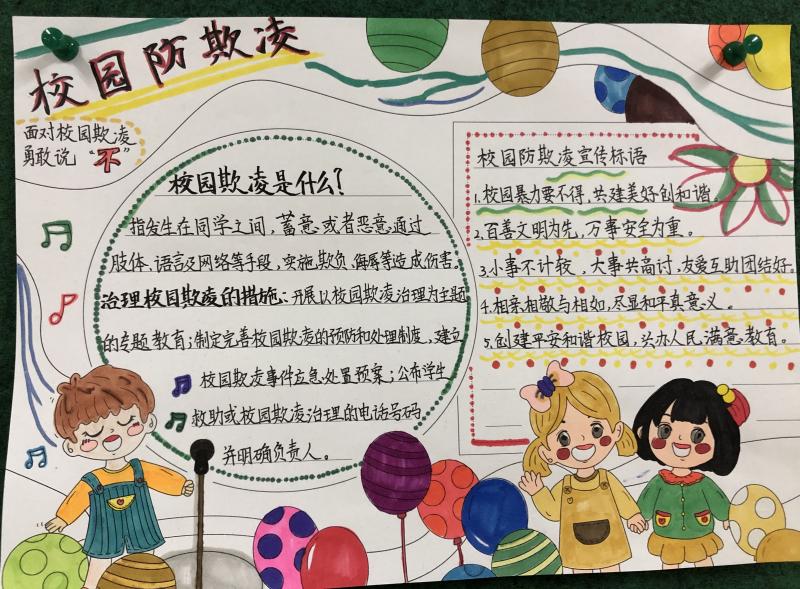 校园防欺凌
面对校园欺凌
勇敢说“不”
校园欺凌是什么？
指发生在同学之间，蓄意或者恶意通过
肢体、语言及网络等手段，实施欺负、侮辱等造成伤害。
治理校园欺凌的措施：开展以校园欺凌治理为主题
的专题教育；制定完善校园欺凌的预防和处理制度，建立
校园欺凌事件应急处置预案；公布学生
救助或校园欺凌治理的电话号码
并明确负责人。
校园防欺凌宣传标语
1.校园暴力要不得，共建美好创和谐。
2.百善文明为先，万事安全为重。
3.小事不计较，大事共商讨，友爱互助团结好。
4.相亲相敬与相如，尽显和平真意义。
5.创建平安和谐校园，兴办人民满意教育。